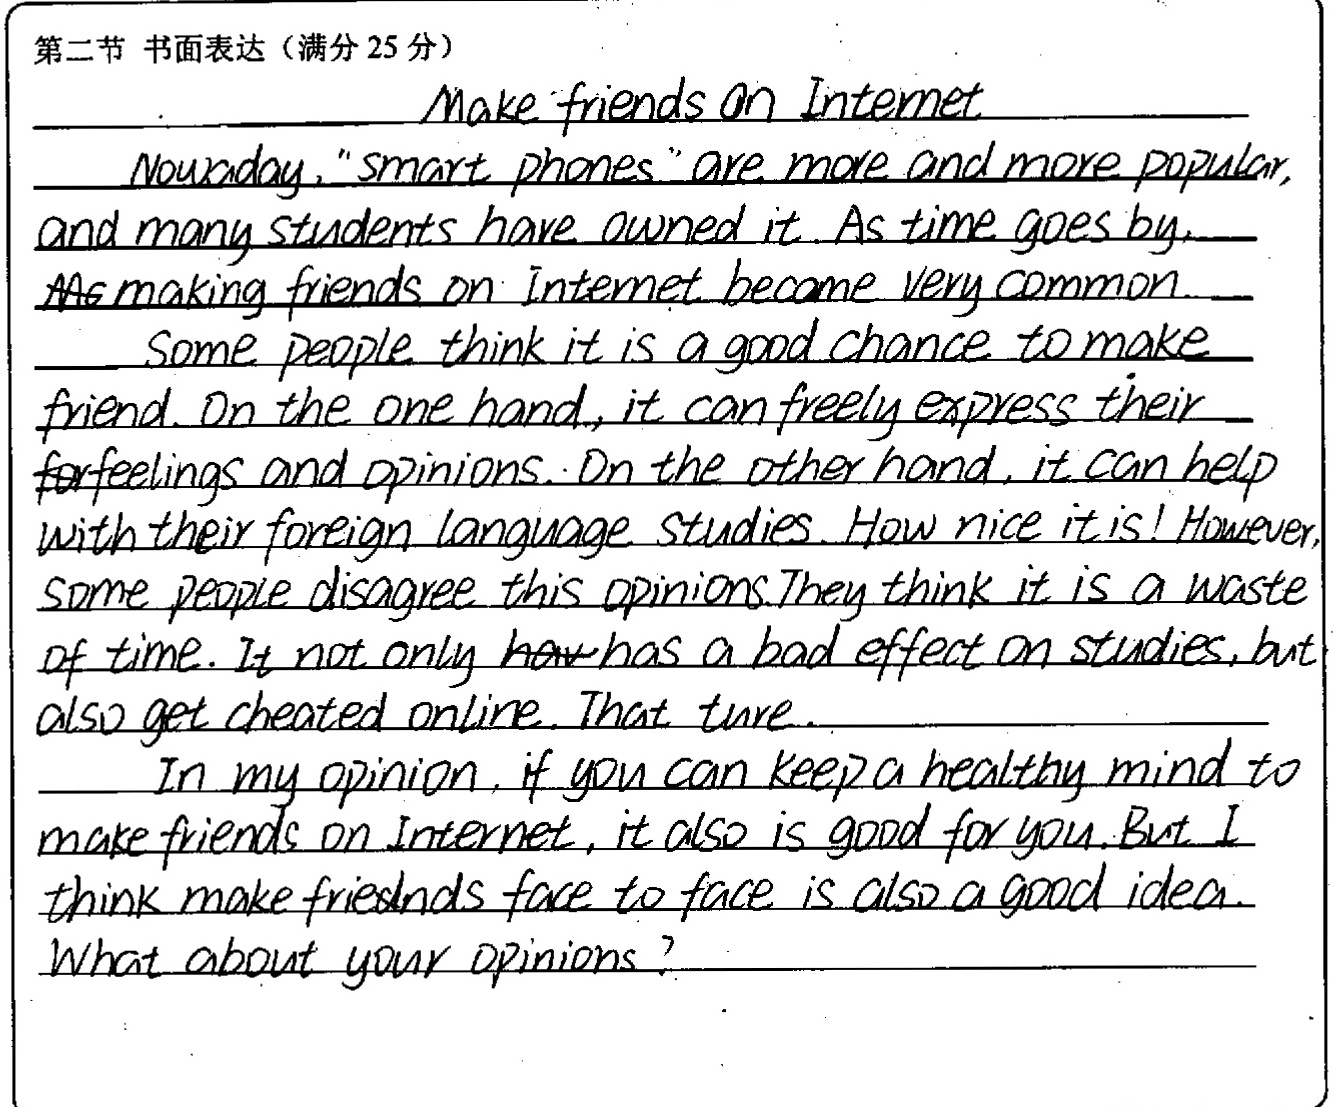 第二节 书面表达（满分 25 分）
Make friends on Internet
Nowaday, "smart phones" are more and more popular,
and many students have owned it. As time goes by,
making friends on Internet become very common.
Some people think it is a good chance to make
friend. On the one hand, it can freely express their
feelings and opinions. On the other hand, it can help
with their foreign language studies. How nice it is! However,
some people disagree this opinions. They think it is a waste
of time. It not only has a bad effect on studies, but
also get cheated online. That ture.
In my opinion, if you can keep a healthy mind to
make friends on Internet, it also is good for you. But I
think make friends face to face is also a good idea.
What about your opinions?